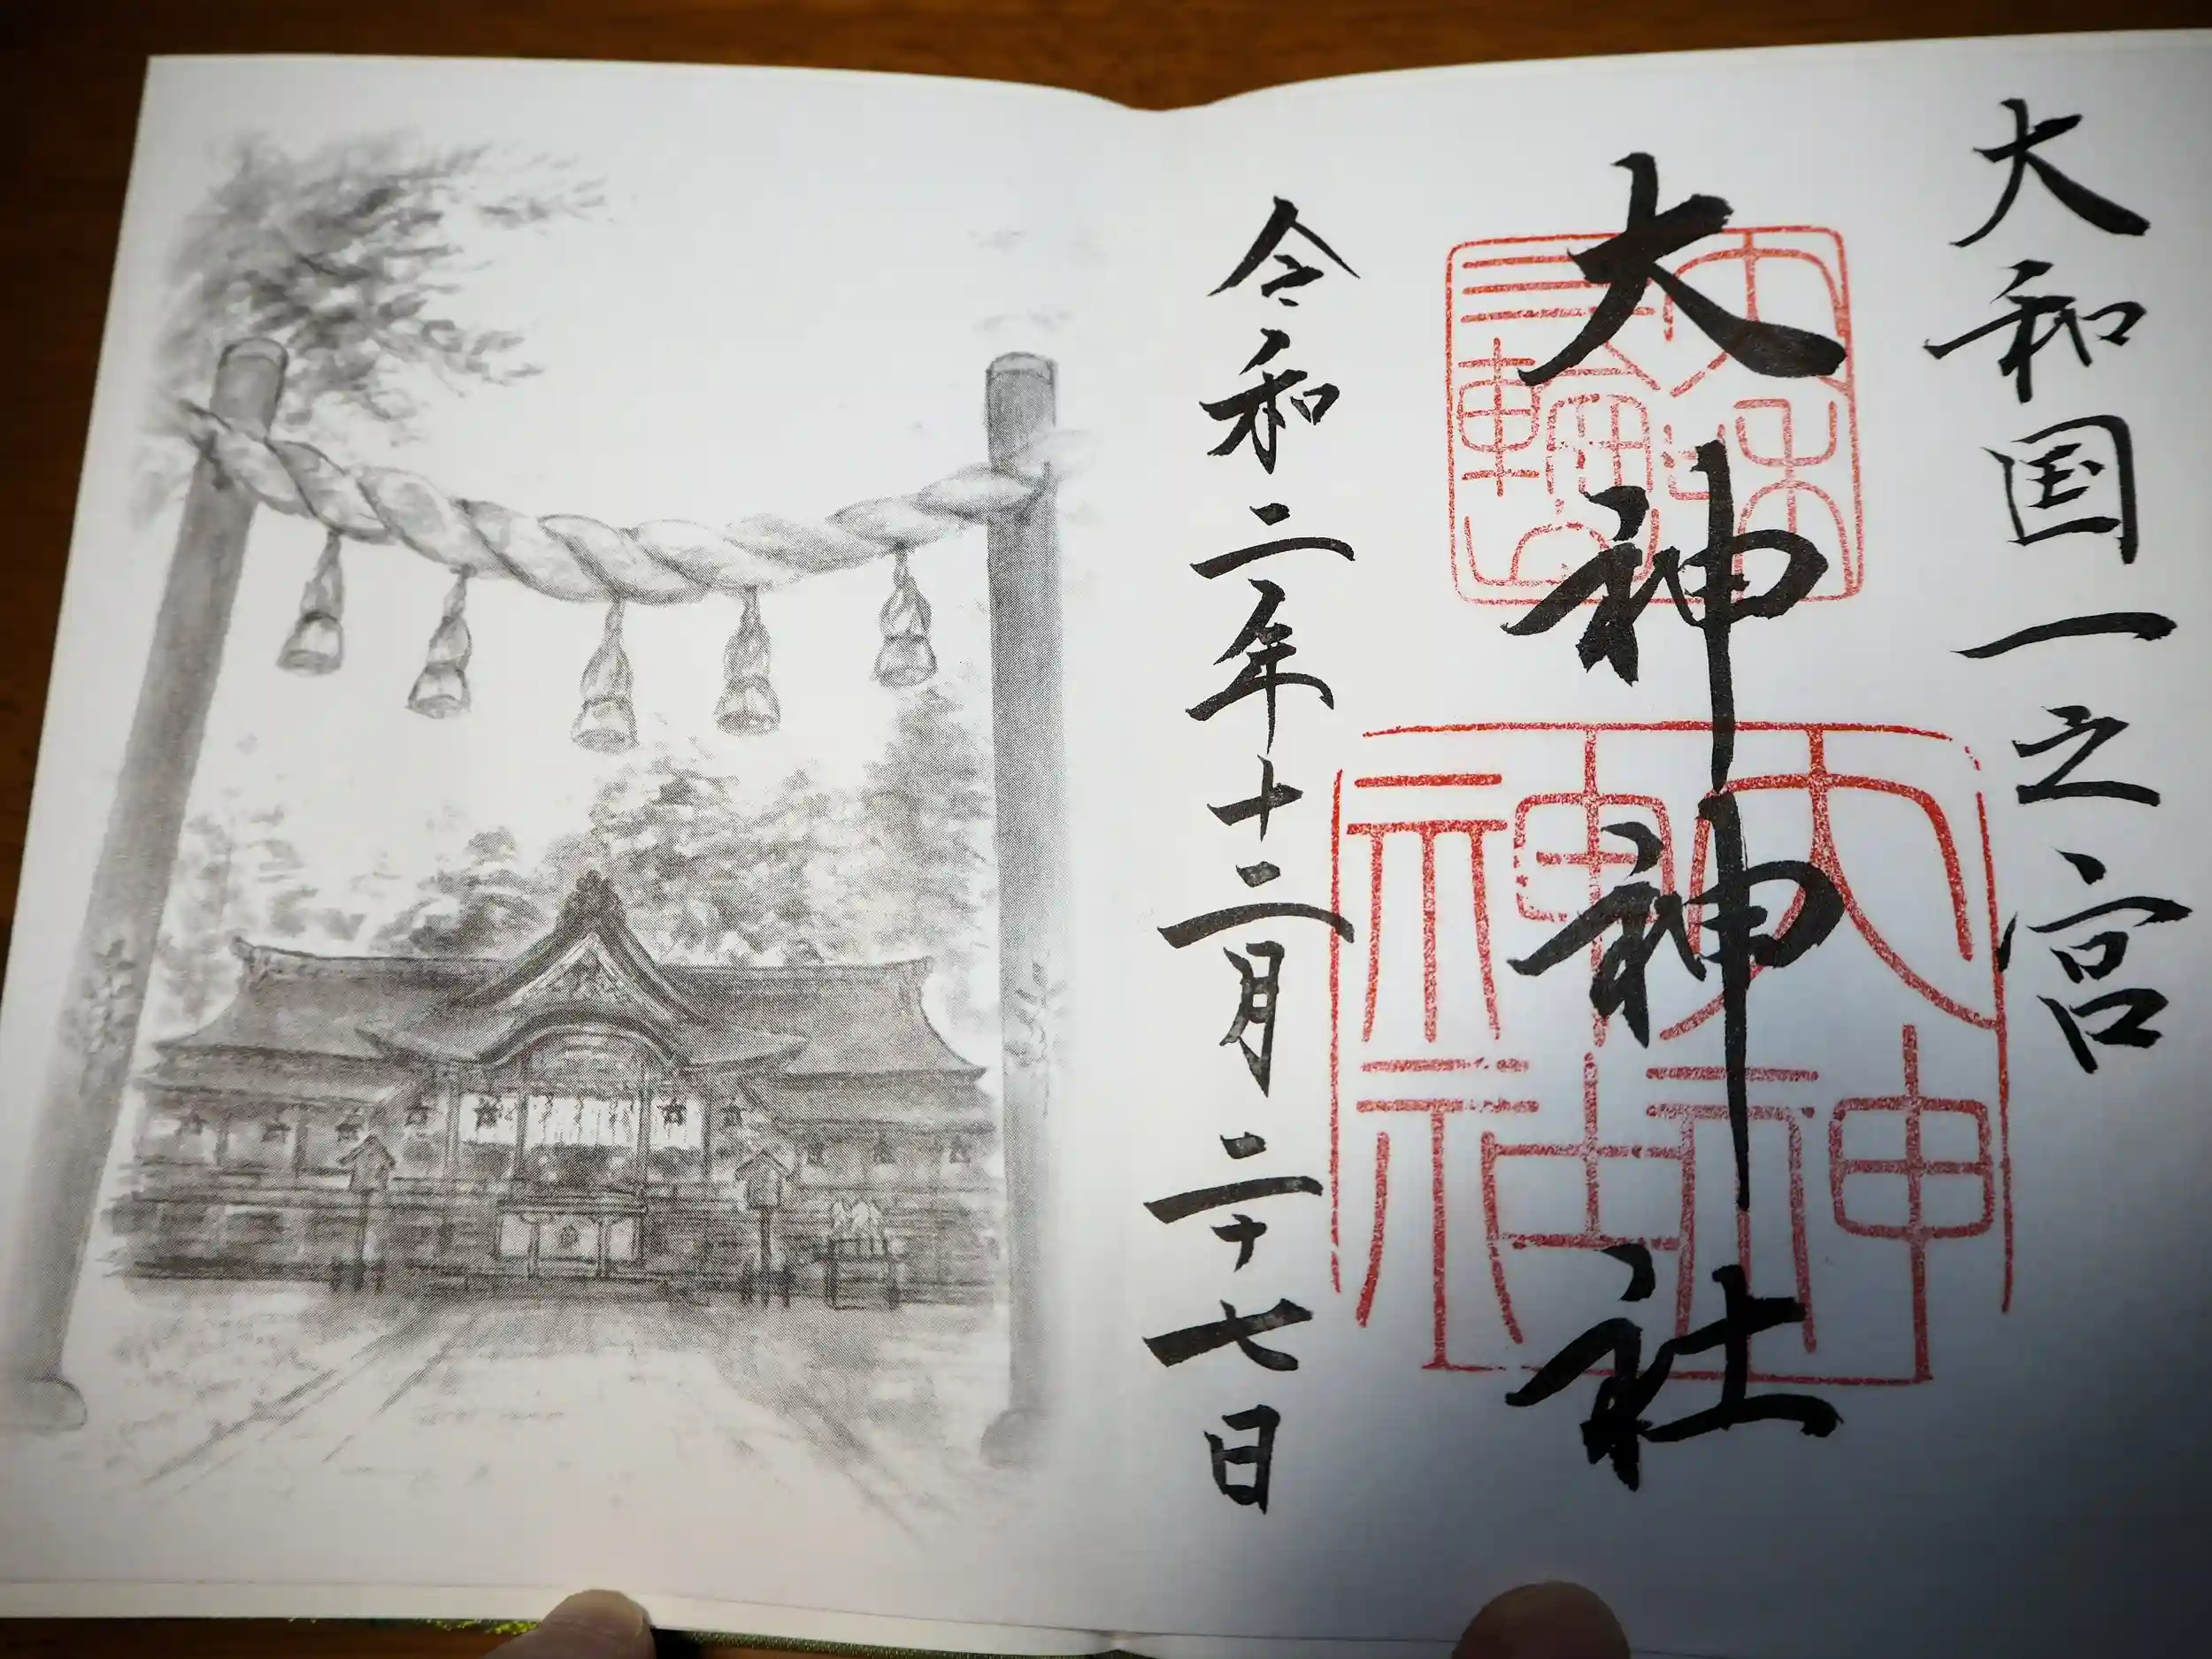 大和国一之宮
大神神社
令和二年十二月二十七日
大神神社